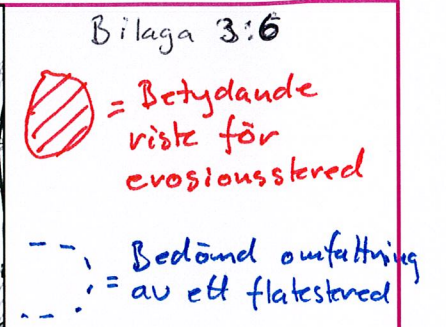 Bilaga 3:6
= Betydande
risk för
erosionsskred
= Bedömd omfattning
av ett flakeskred